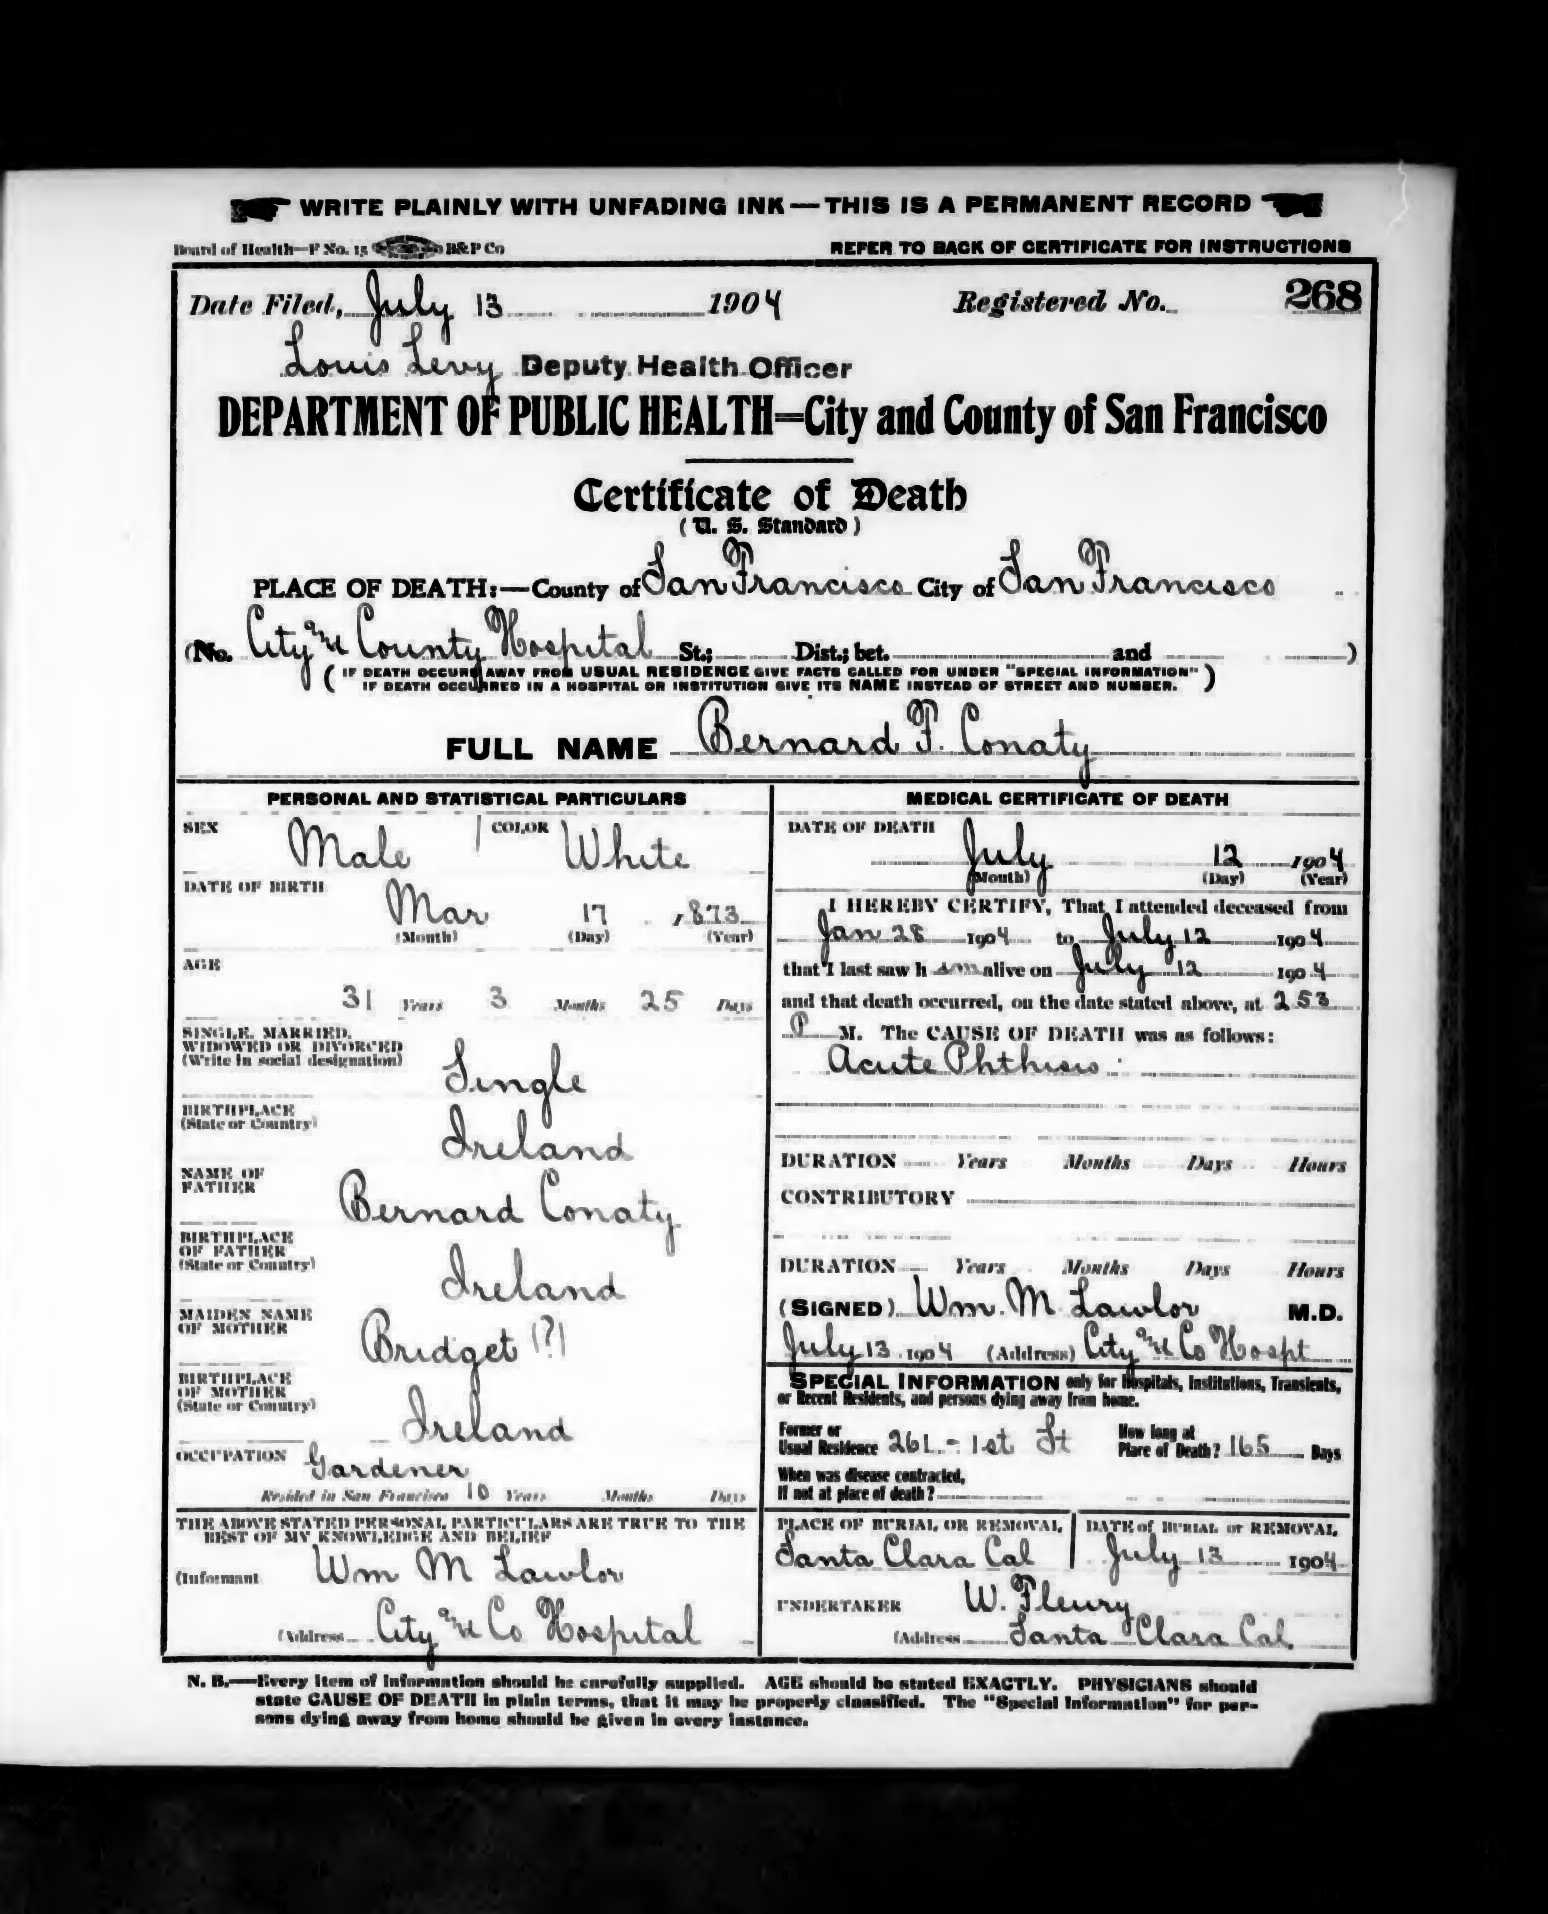 WRITE PLAINLY WITH UNFADING INK—THIS IS A PERMANENT RECORD
Board of Health—F No. 15 B&P Co REFER TO BACK OF CERTIFICATE FOR INSTRUCTIONS
Date Filed, July 13 1904 Registered No. 268
Louis Levy Deputy Health Officer
DEPARTMENT OF PUBLIC HEALTH—City and County of San Francisco
Certificate of Death
(U. S. Standard)
PLACE OF DEATH:—County of San Francisco City of San Francisco
(No. City and County Hospital St.; Dist.; bet. and )
(IF DEATH OCCURS AWAY FROM USUAL RESIDENCE GIVE FACTS CALLED FOR UNDER "SPECIAL INFORMATION"
IF DEATH OCCURRED IN A HOSPITAL OR INSTITUTION GIVE ITS NAME INSTEAD OF STREET AND NUMBER.)
FULL NAME Bernard F. Conaty
PERSONAL AND STATISTICAL PARTICULARS
SEX Male COLOR White
DATE OF BIRTH Mar 17 1873
(Month) (Day) (Year)
AGE
31 Years 3 Months 25 Days
SINGLE, MARRIED,
WIDOWED OR DIVORCED
(Write in social designation) Single
BIRTHPLACE
(State or Country) Ireland
NAME OF
FATHER Bernard Conaty
BIRTHPLACE
OF FATHER
(State or Country) Ireland
MAIDEN NAME
OF MOTHER Bridget (?)
BIRTHPLACE
OF MOTHER
(State or Country) Ireland
OCCUPATION Gardener
Resided in San Francisco 10 Years Months Days
THE ABOVE STATED PERSONAL PARTICULARS ARE TRUE TO THE
BEST OF MY KNOWLEDGE AND BELIEF
(Informant Wm M Lawlor
(Address City and Co Hospital
MEDICAL CERTIFICATE OF DEATH
DATE OF DEATH
July 12 1904
(Month) (Day) (Year)
I HEREBY CERTIFY, That I attended deceased from
Jan 28 1904 to July 12 1904
that I last saw h im alive on July 12 1904
and that death occurred, on the date stated above, at 2 53
P M. The CAUSE OF DEATH was as follows:
Acute Phthisis
DURATION Years Months Days Hours
CONTRIBUTORY
DURATION Years Months Days Hours
(SIGNED) Wm. M Lawlor M.D.
July 13 1904 (Address) City and Co Hospt
SPECIAL INFORMATION only for Hospitals, Institutions, Transients,
or Recent Residents, and persons dying away from home.
Former or
Usual Residence 261 - 1st St How long at
Place of Death? 165 Days
When was disease contracted,
If not at place of death?
PLACE OF BURIAL OR REMOVAL DATE of BURIAL or REMOVAL
Santa Clara Cal July 13 1904
UNDERTAKER W. Fleury
(Address Santa Clara Cal
N. B.—Every item of information should be carefully supplied. AGE should be stated EXACTLY. PHYSICIANS should
state CAUSE OF DEATH in plain terms, that it may be properly classified. The "Special Information" for per-
sons dying away from home should be given in every instance.